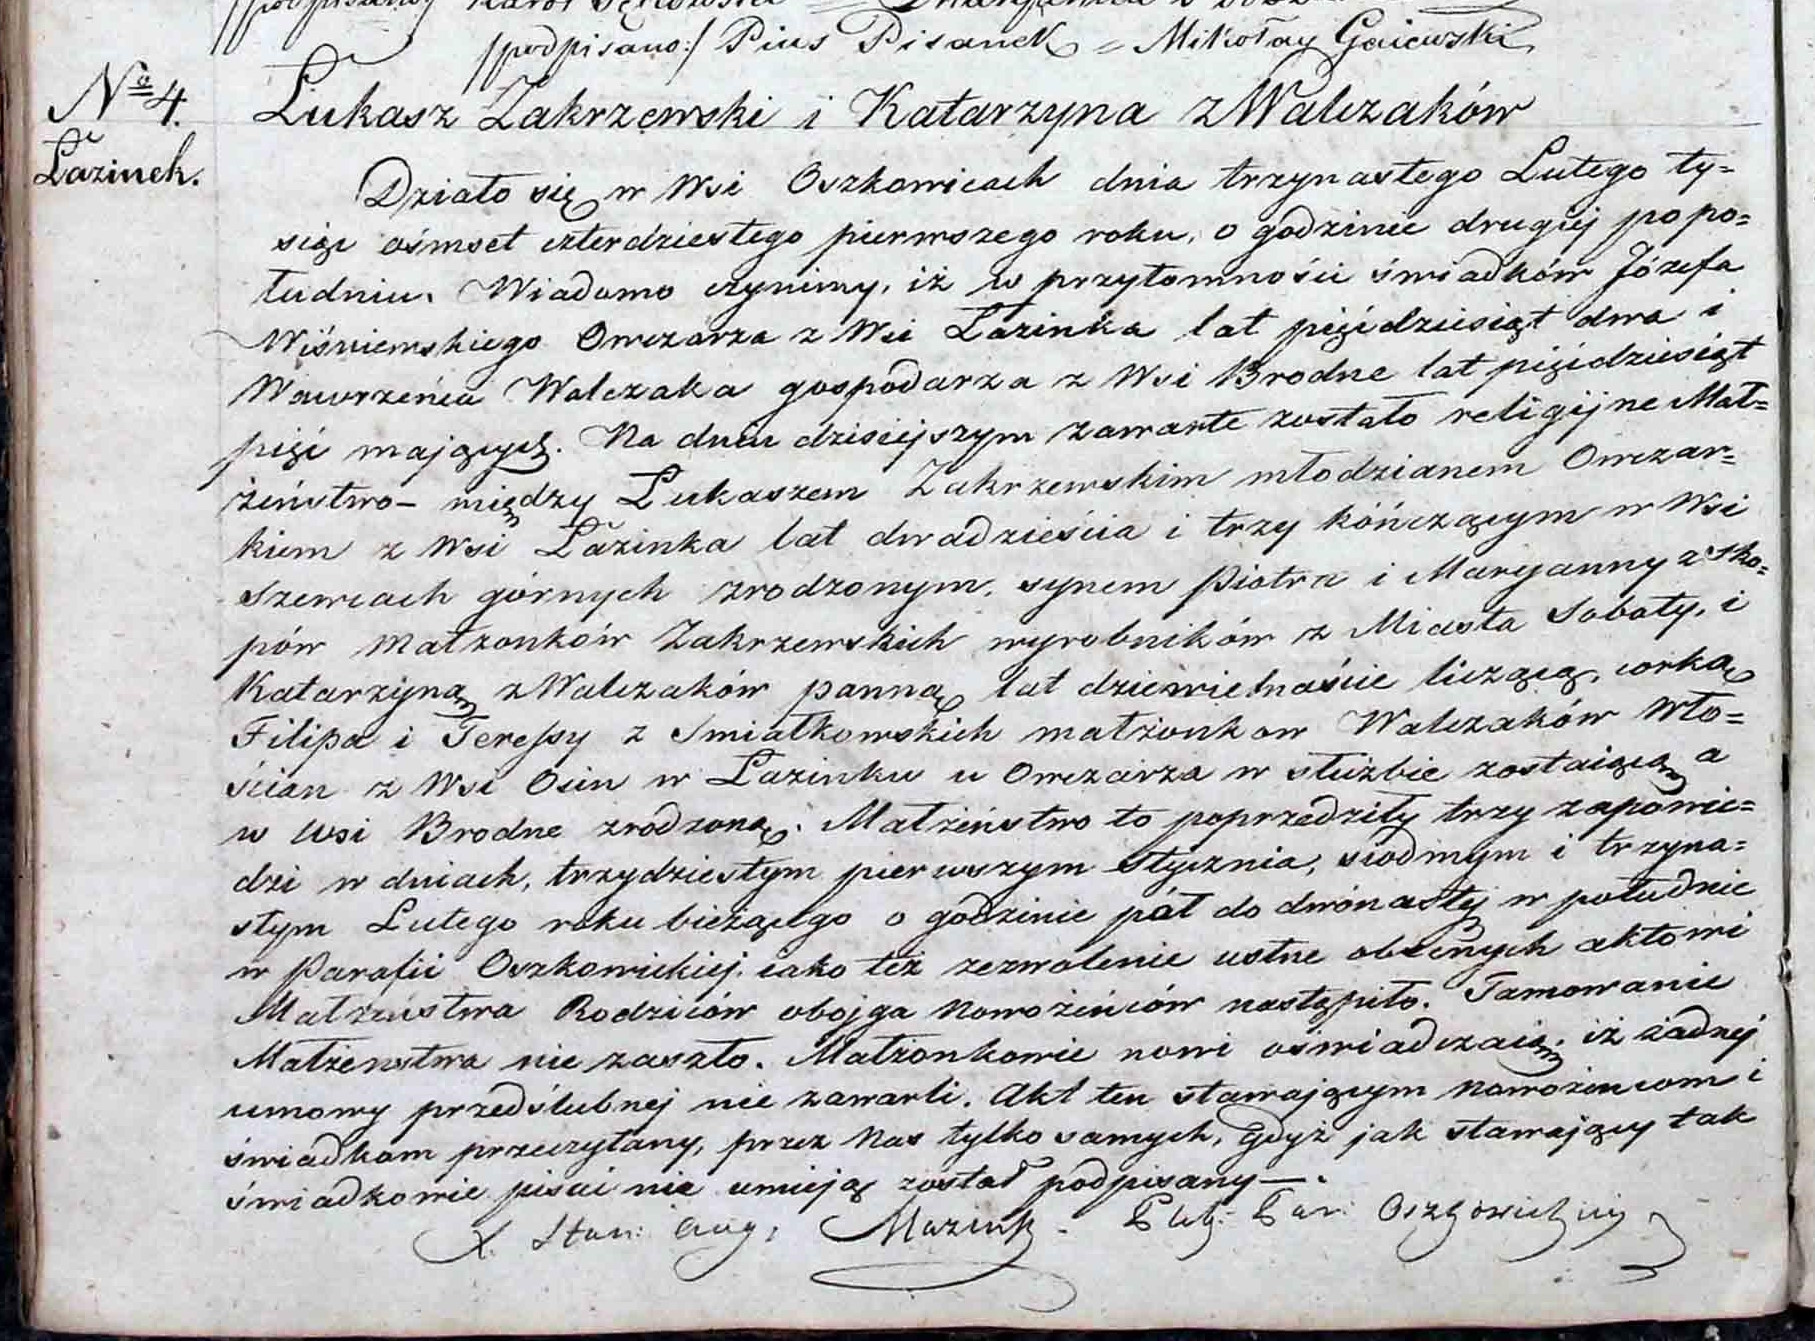 /podpisano:/ Pius Pisanek = Mikołay Gaiewski
No 4.
Łazinek.
Łukasz Zakrzewski i Katarzyna z Walczaków
Działo się w Wsi Oszkowicach dnia trzynastego Lutego ty=
siąc ośmset czterdziestego pierwszego roku, o godzinie drugiej po po=
łudniu. Wiadomo czynimy, iż w przytomności świadków Józefa
Wiśniewskiego Owczarza z Wsi Łazinka lat pięćdziesiąt dwa i
Wawrzeńca Walczaka gospodarza z Wsi Brodne lat pięćdziesiąt
pięć mających. Na dniu dzisiejszym zawarte zostało religijne Mał=
żeństwo – między Łukaszem Zakrzewskim młodzianem Owczar=
kiem z Wsi Łazinka lat dwadzieścia i trzy kończącym w Wsi
Szewcach górnych zrodzonym, synem Piotra i Maryanny z Sko=
pów Małzonków Zakrzewskich wyrobników z Miasta Soboty, i
Katarzyną z Walczaków panną lat dziewietnaście liczącą, corką
Filipa i Teressy z Smiałkowskich małżonkow Walczaków Wło=
ścian z Wsi Osin w Łazinku u Owczarza w służbie zostaiącą a
w Wsi Brodne zrodzoną. Małżeństwo to poprzedziły trzy zapowie=
dzi w dniach, trzydziestym pierwszym Stycznia, siodmym i trzyna=
stym Lutego roku bieżącego o godzinie pół do dwónastej w południe
w Parafii Oszkowickiej, iako też zezwolenie ustne obecnych aktowi
Małżeństwa Rodziców obojga Nowożeńców nastąpiło. Tamowanie
Małżenstwa nie zaszło. Małżonkowie nowi oświadczaią, iż żadnej
umowy przedślubnej nie zawarli. Akt ten stawającym Nowożencom i
świadkom przeczytany, przez Nas tylko samych, gdyż jak stawający tak
świadkowie pisać nie umieją został podpisany —.
X. Stan: Aug: